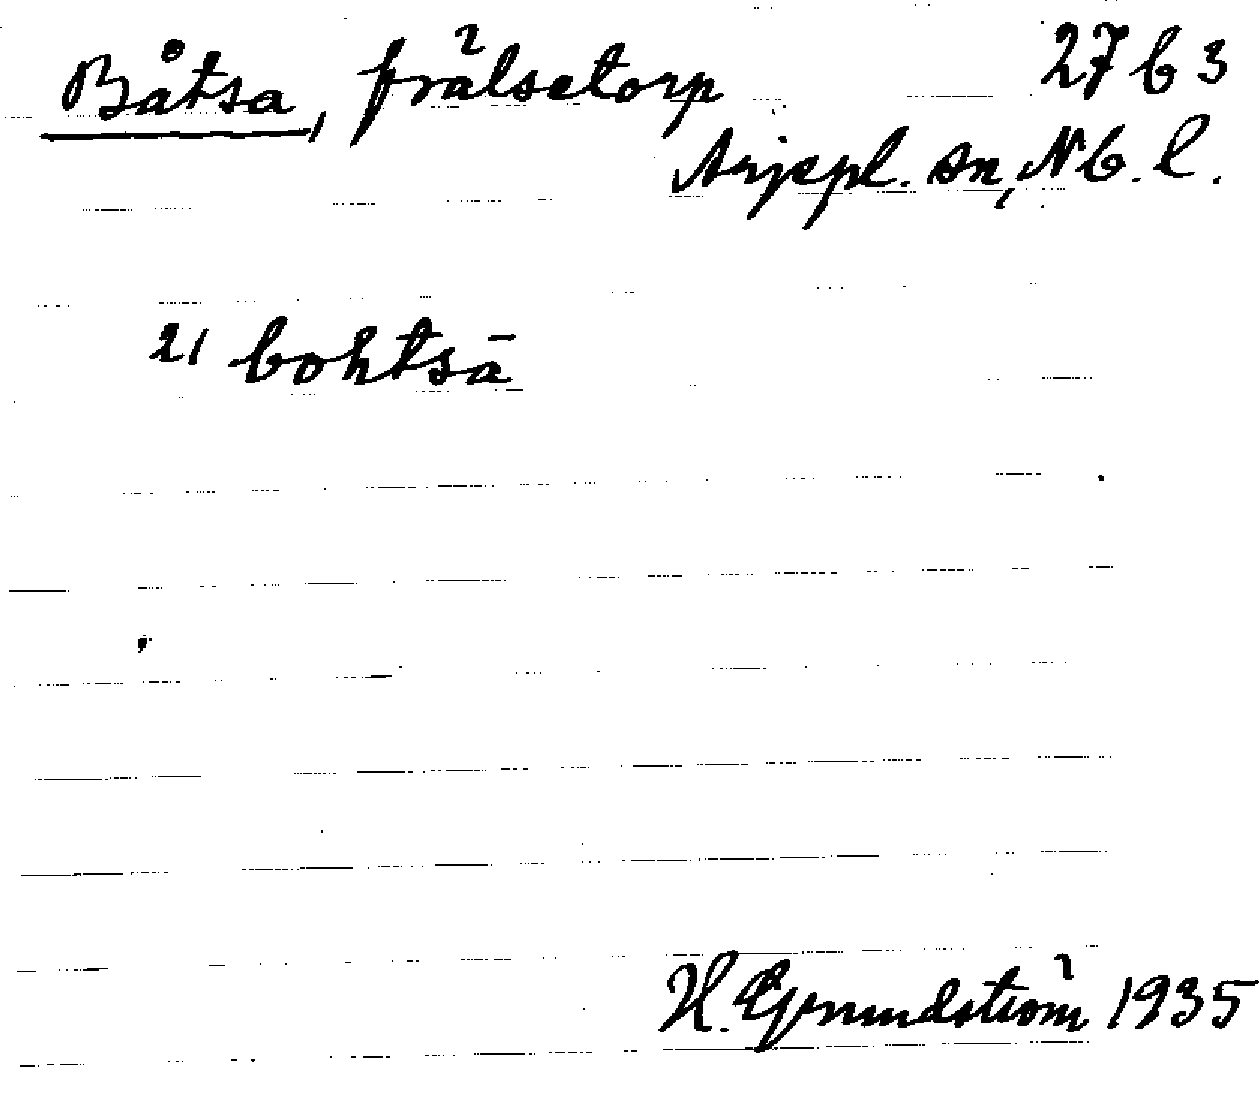 Båtsa, frälsetorp 27 b 3
Arjepl. sn, Nb. l.
2/ bohtsā
H. Grundström 1935